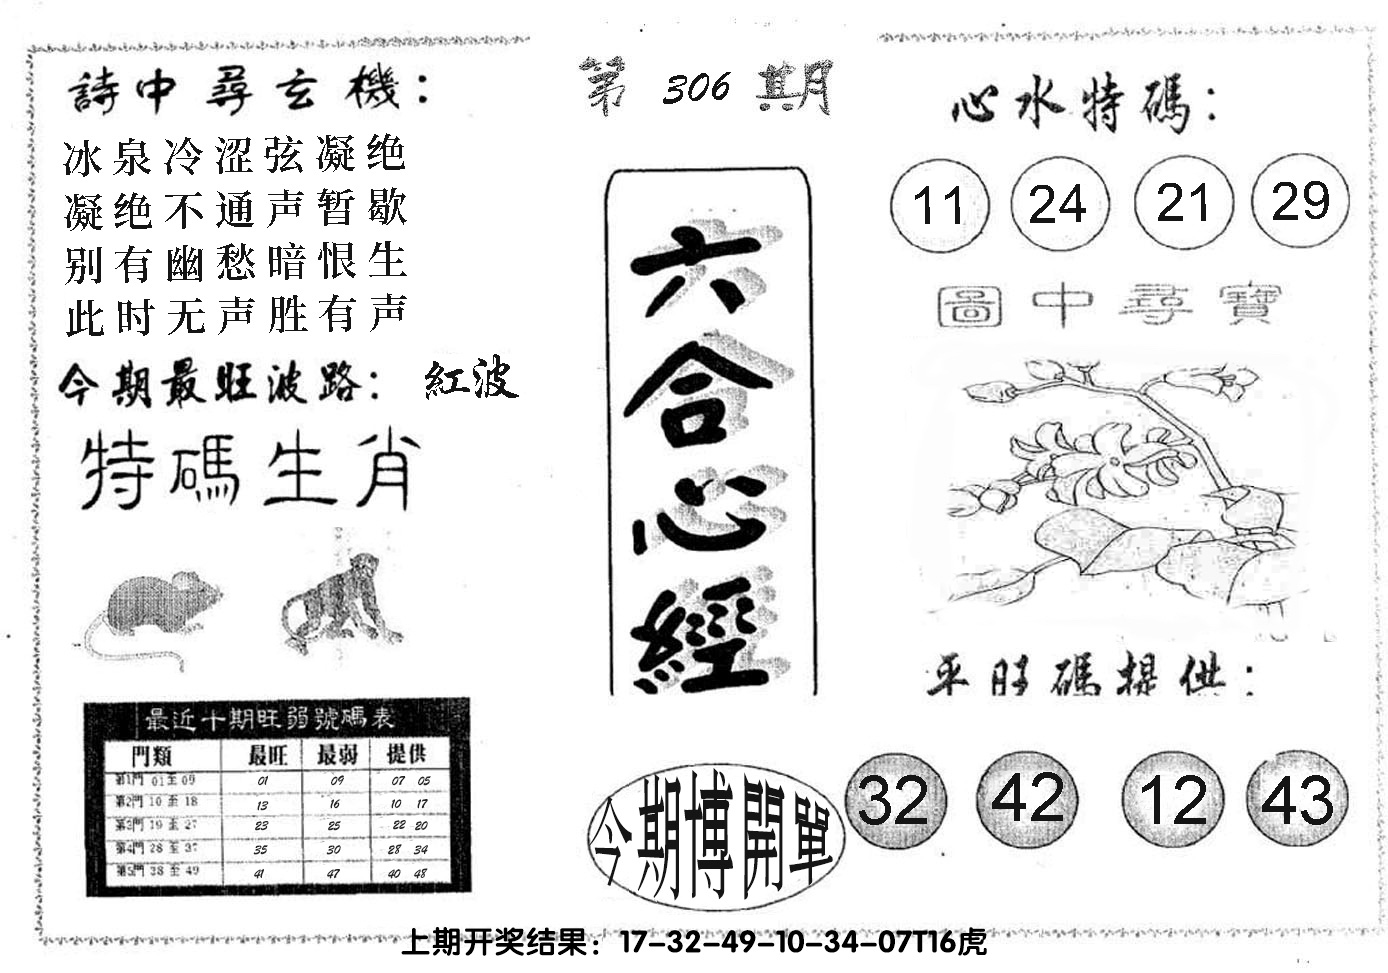 詩中尋玄機：
冰泉冷涩弦凝绝
凝绝不通声暂歇
别有幽愁暗恨生
此时无声胜有声
今期最旺波路：紅波
特碼生肖
最近十期旺弱號碼表
門類 最旺 最弱 提供
第1門 01至09 01 09 07 05
第2門 10至18 13 16 10 17
第3門 19至27 23 25 22 20
第4門 28至37 35 30 28 34
第5門 38至49 41 47 40 48
第306期
六合心經
今期博開單
心水特碼：
11 24 21 29
圖中尋寶
平旺碼提供：
32 42 12 43
上期开奖结果：17-32-49-10-34-07T16虎